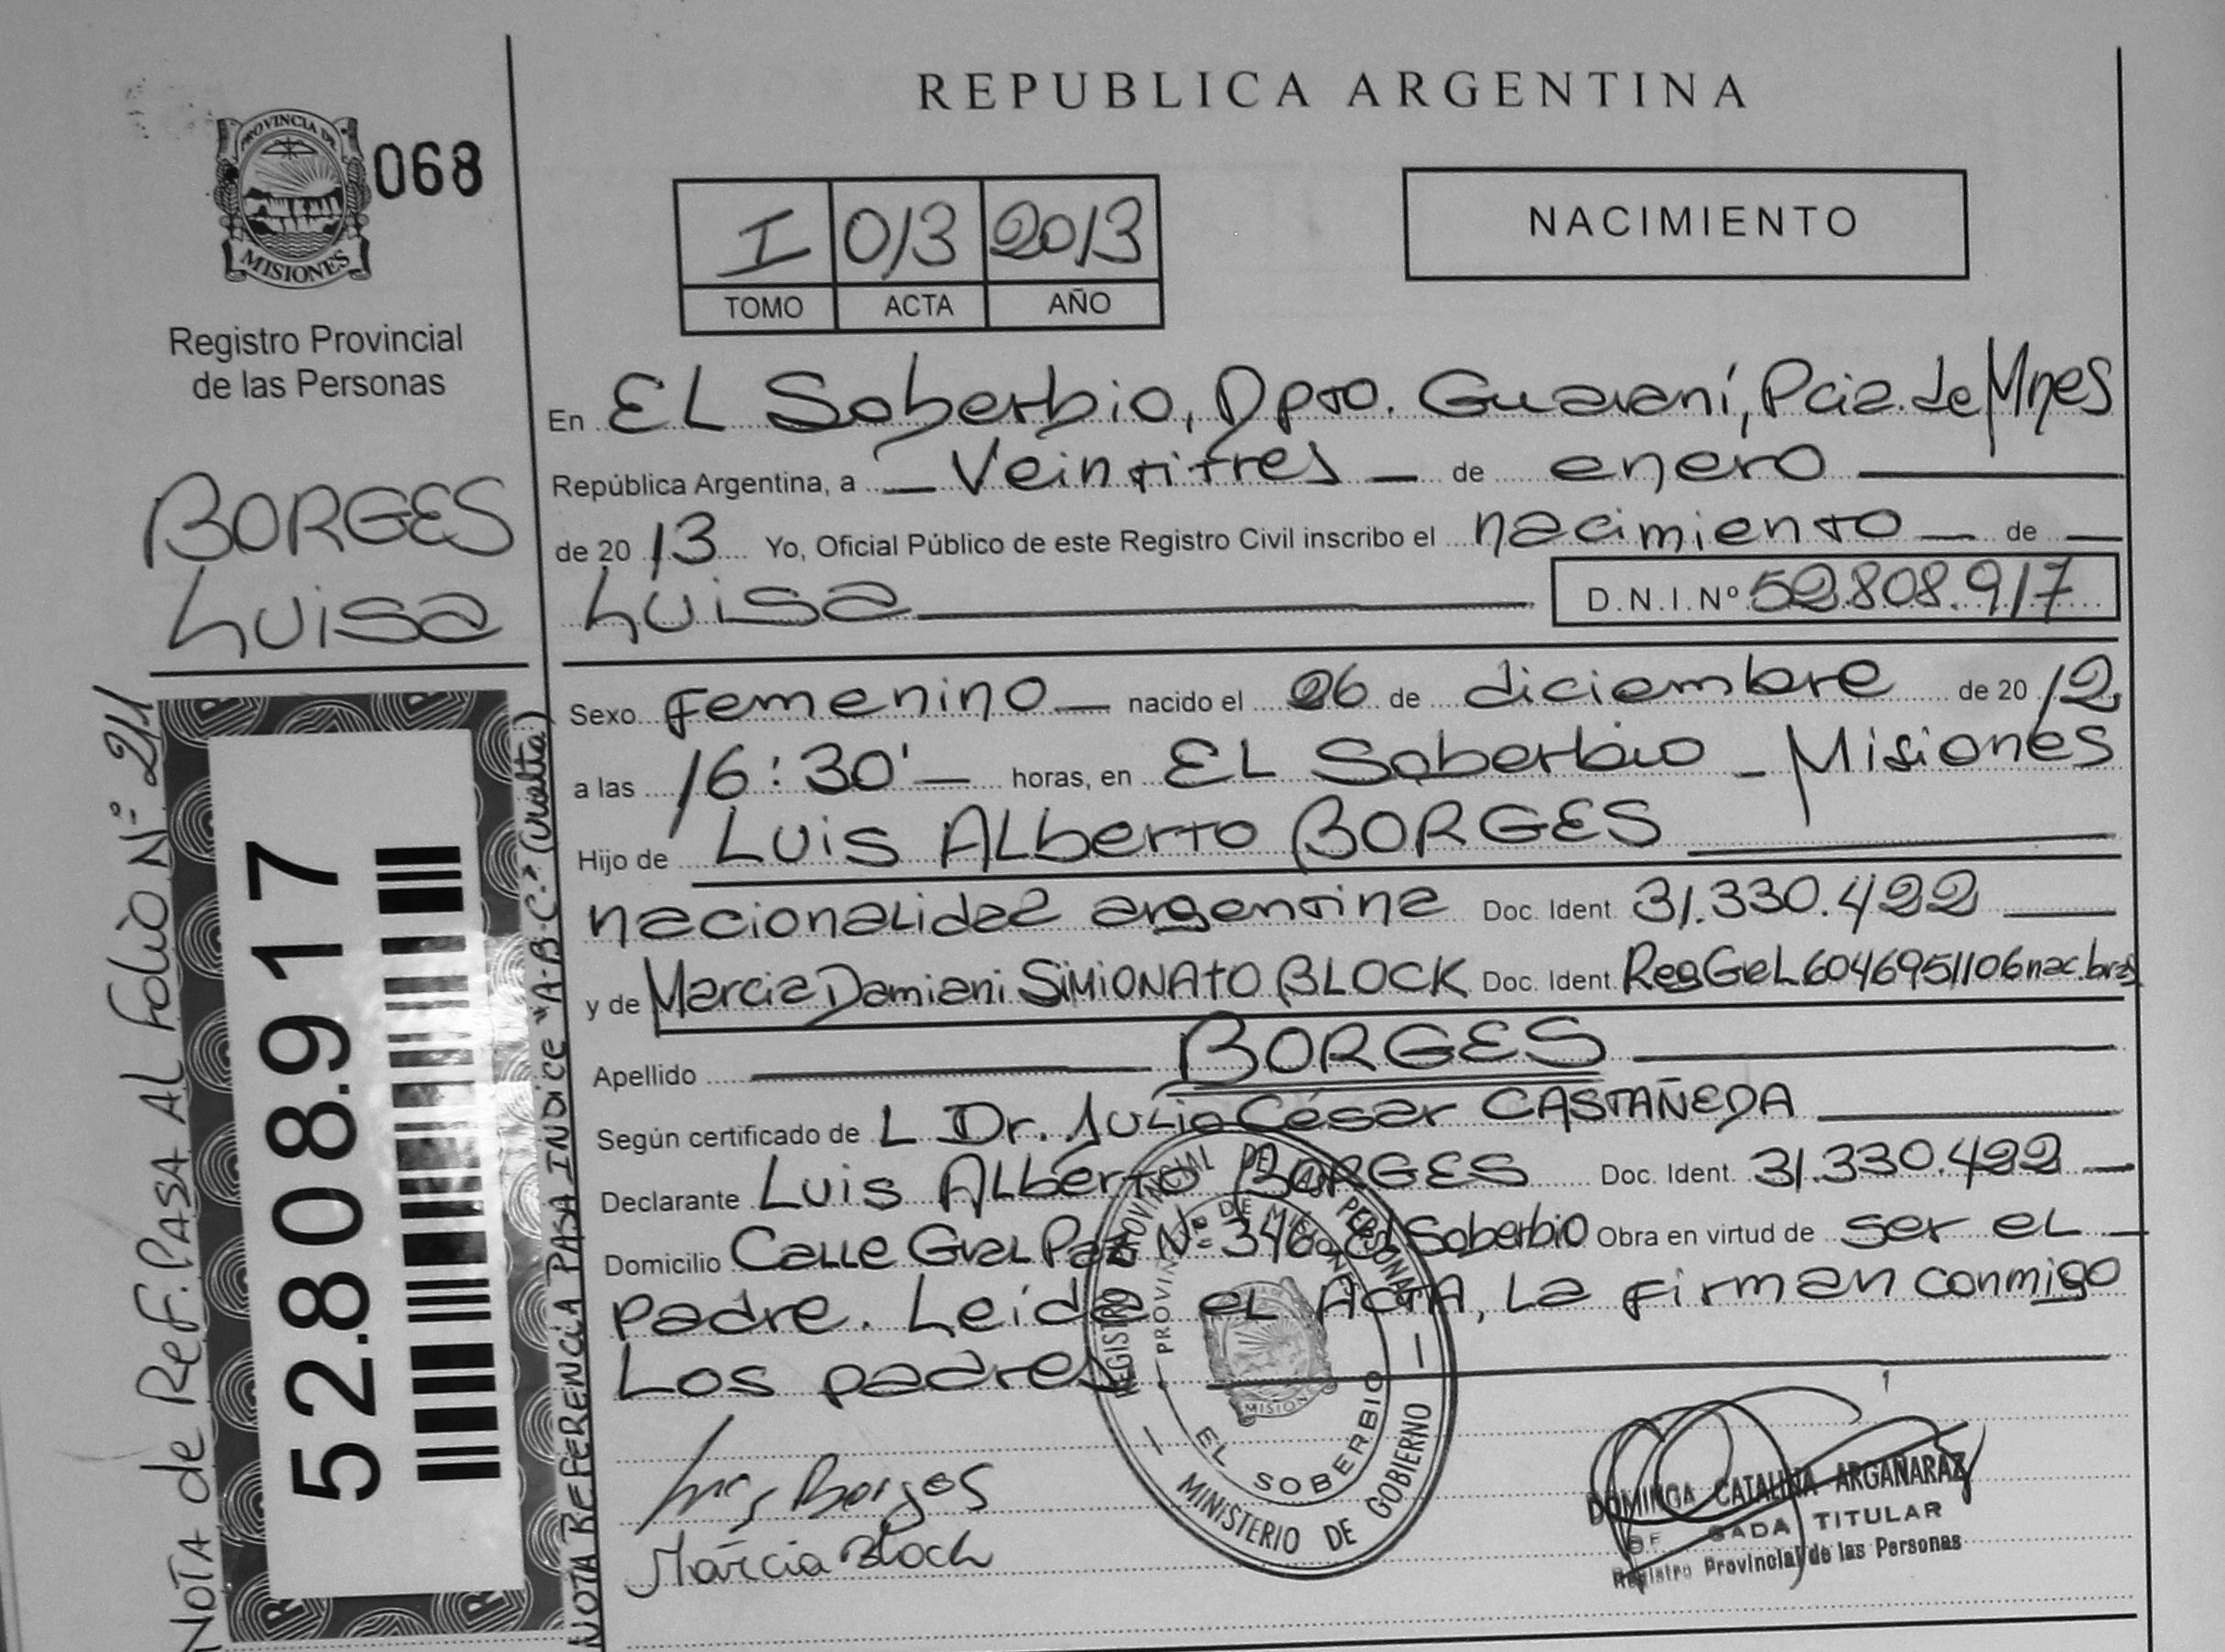 REPUBLICA ARGENTINA
PROVINCIA DE
MISIONES
068
Registro Provincial
de las Personas
I 013 2013
TOMO ACTA AÑO
NACIMIENTO
BORGES
Luisa
En EL Soberbio, Dpto. Guaraní, Pcia. de Mnes
República Argentina, a _ Veintitres _ de enero
de 20 13 Yo, Oficial Público de este Registro Civil inscribo el nacimiento _ de _
Luisa D.N.I.Nº 52.808.917
Sexo Femenino _ nacido el 26 de diciembre de 20 12
a las 16:30' _ horas, en EL Soberbio _ Misiones
Hijo de Luis ALberto BORGES
nacionalidad argentina Doc. Ident. 31.330.422
y de Marcia Damiani SiMiONATO BLOCK Doc. Ident. Reg GeL 6046951106 nac. bras
Apellido BORGES
Según certificado de L Dr. Julio César CASTAÑEDA
Declarante Luis ALberto BORGES Doc. Ident. 31.330.422 _
Domicilio CaLLe GraL Paz Nº 346 _ eL Soberbio Obra en virtud de ser eL _
padre. Leida eL ACTA, La Firman conmigo
Los padres
Luis Borges
Márcia Block
REGISTRO PROVINCIAL DE LAS PERSONAS
PROVINCIA DE MISIONES
EL SOBERBIO
MINISTERIO DE GOBIERNO
DOMINGA CATALINA ARGAÑARAZ
TITULAR
Registro Provincial de las Personas
52.808.917
NOTA de Ref. PASA AL Folio Nº 211
NOTA REFERENCIA PASA INDICE "A-B-C." (vuelta)